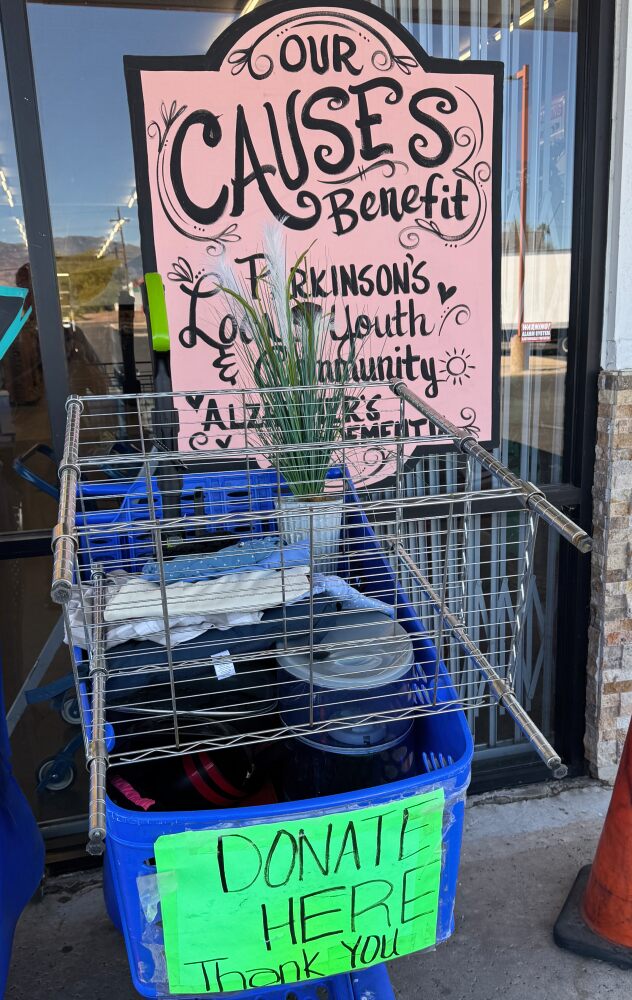 OUR
CAUSES
Benefit
PARKINSON'S
Local Youth
& Community
ALZHEIMER'S
DEMENTIA
DONATE
HERE
Thank You